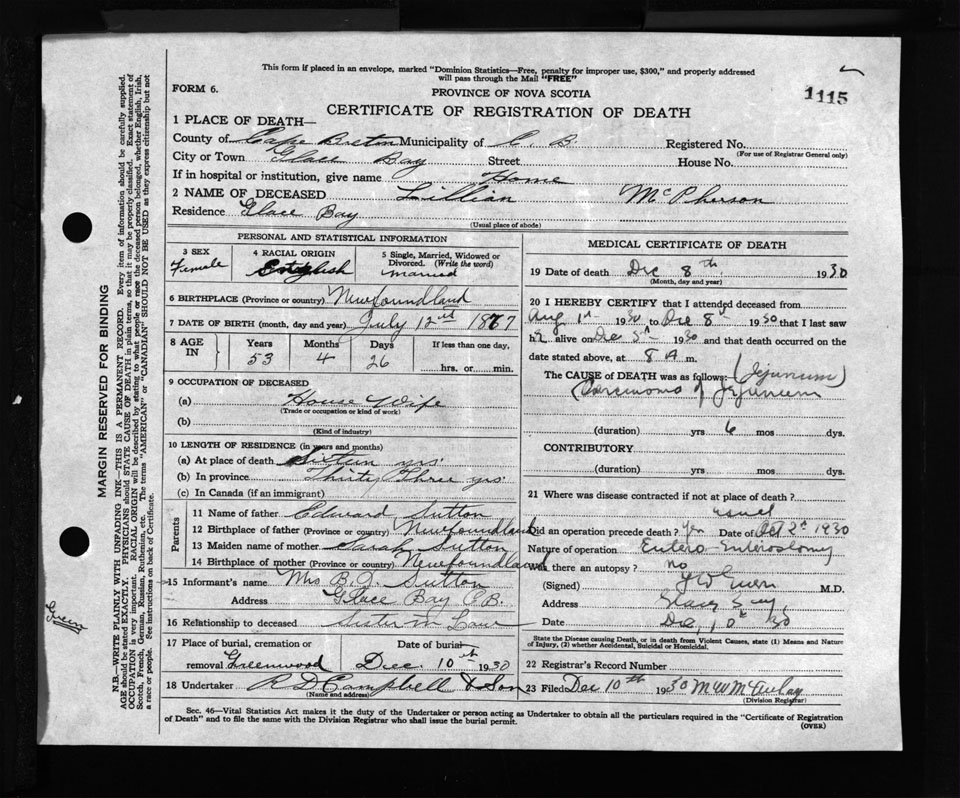 This form if placed in an envelope, marked "Dominion Statistics—Free, penalty for improper use, $300," and properly addressed
will pass through the Mail "FREE"
FORM 6.
PROVINCE OF NOVA SCOTIA
1115
CERTIFICATE OF REGISTRATION OF DEATH
1 PLACE OF DEATH—
County of Cape Breton Municipality of C. B. Registered No.
(For use of Registrar General only)
City or Town Glace Bay Street House No.
If in hospital or institution, give name Home
2 NAME OF DECEASED Lillian McPherson
Residence Glace Bay
(Usual place of abode)
PERSONAL AND STATISTICAL INFORMATION
3 SEX
Female
4 RACIAL ORIGIN
English
5 Single, Married, Widowed or
Divorced. (Write the word)
married
6 BIRTHPLACE (Province or country) Newfoundland
7 DATE OF BIRTH (month, day and year) July 12th 1877
8 AGE IN
Years Months Days If less than one day,
53 4 26 hrs. or min.
9 OCCUPATION OF DECEASED
(a) House Wife
(Trade or occupation or kind of work)
(b)
(Kind of industry)
10 LENGTH OF RESIDENCE (in years and months)
(a) At place of death Sixteen yrs
(b) In province Thirty Three yrs.
(c) In Canada (if an immigrant)
Parents
11 Name of father Edward Sutton
12 Birthplace of father (Province or country) Newfoundland
13 Maiden name of mother Sarah Sutton
14 Birthplace of mother (Province or country) Newfoundland
15 Informant's name Mrs B. J. Sutton
Address Glace Bay C.B.
16 Relationship to deceased Sister in Law
17 Place of burial, cremation or Date of burial
removal Greenwood Dec. 10th 1930
18 Undertaker R D Campbell & Son
(Name and address)
MEDICAL CERTIFICATE OF DEATH
19 Date of death Dec 8th 1930
(Month, day and year)
20 I HEREBY CERTIFY that I attended deceased from
Aug 1st 1930 to Dec 8th 1930 that I last saw
h alive on Dec 5th 1930 and that death occurred on the
date stated above, at 8 A m.
The CAUSE OF DEATH was as follows: (Jejunum)
Carcinoma of Jejunum
(duration) yrs 6 mos dys.
CONTRIBUTORY
(duration) yrs mos dys.
21 Where was disease contracted if not at place of death?
usual
Did an operation precede death? Yes Date of Oct 2d 1930
Nature of operation Entero-Enterostomy
Was there an autopsy? no
(Signed) M.D.
Address Glace Bay
Date Dec, 10th 30
State the Disease causing Death, or in death from Violent Causes, state (1) Means and Nature
of Injury, (2) whether Accidental, Suicidal or Homicidal.
22 Registrar's Record Number
23 Filed Dec 10th 1930 M W McAulay
(Division Registrar)
Sec. 46—Vital Statistics Act makes it the duty of the Undertaker or person acting as Undertaker to obtain all the particulars required in the "Certificate of Registration
of Death" and to file the same with the Division Registrar who shall issue the burial permit.
(OVER)
MARGIN RESERVED FOR BINDING
N.B.—WRITE PLAINLY WITH UNFADING INK—THIS IS A PERMANENT RECORD. Every item of information should be carefully supplied.
AGE should be stated EXACTLY. PHYSICIANS should STATE CAUSE OF DEATH in plain terms, so that it may be properly classified. Exact statement of
OCCUPATION is very important. RACIAL ORIGIN will be described by stating to what people or race the deceased person belonged, whether English, Irish,
Scotch, French, German, Russian, Ruthenian, etc. The terms "AMERICAN" or "CANADIAN" SHOULD NOT BE USED as they express citizenship but not
a race or people. See instructions on back of Certificate.